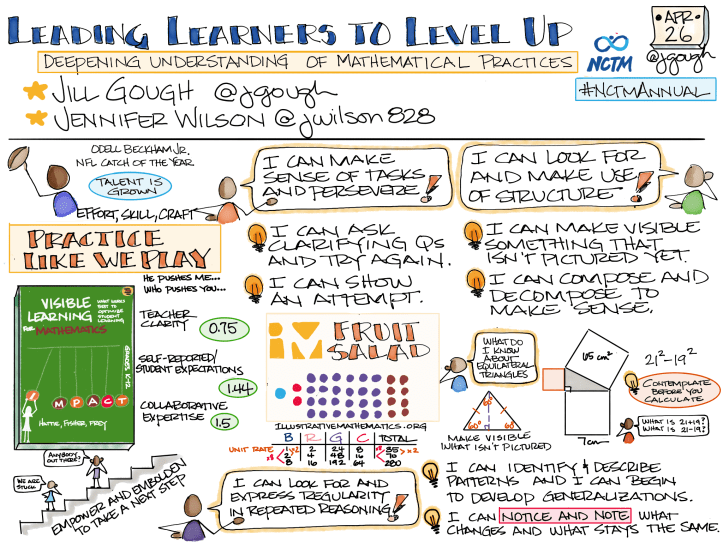 LEADING LEARNERS TO LEVEL UP
DEEPENING UNDERSTANDING OF MATHEMATICAL PRACTICES
JILL GOUGH @jgough
JENNIFER WILSON @jwilson828
NCTM
APR
26
@jgough
#NCTMANNUAL
ODELL BECKHAM JR.
NFL CATCH OF THE YEAR
TALENT IS
GROWN
EFFORT, SKILL, CRAFT
PRACTICE
LIKE WE PLAY
I CAN MAKE
SENSE OF TASKS
AND PERSEVERE
I CAN ASK
CLARIFYING QS
AND TRY AGAIN.
I CAN SHOW
AN ATTEMPT.
I CAN LOOK FOR
AND MAKE USE
OF STRUCTURE
I CAN MAKE VISIBLE
SOMETHING THAT
ISN'T PICTURED YET.
I CAN COMPOSE AND
DECOMPOSE TO
MAKE SENSE.
HE PUSHES ME...
WHO PUSHES YOU...
VISIBLE
LEARNING
FOR MATHEMATICS
WHAT WORKS
BEST TO
OPTIMIZE
STUDENT
LEARNING
GRADES K-12
IMPACT
HATTIE, FISHER, FREY
TEACHER
CLARITY
0.75
SELF-REPORTED/
STUDENT EXPECTATIONS
1.44
COLLABORATIVE
EXPERTISE
1.5
im FRUIT
SALAD
ILLUSTRATIVEMATHEMATICS.ORG
B R G C TOTAL
UNIT RATE 1 2 24 8 35
x2
x8 2 4 48 16 70
x8
8 16 192 64 280
WHAT DO
I KNOW
ABOUT
EQUILATERAL
TRIANGLES
60° 60°
MAKE VISIBLE
WHAT ISN'T PICTURED
65 cm²
7cm
21²-19²
CONTEMPLATE
BEFORE YOU
CALCULATE
WHAT IS 21+19?
WHAT IS 21-19?
ANYBODY
OUT THERE?
WE ARE
STUCK
EMPOWER AND EMBOLDEN
TO TAKE A NEXT STEP
I CAN LOOK FOR AND
EXPRESS REGULARITY
IN REPEATED REASONING
I CAN IDENTIFY & DESCRIBE
PATTERNS AND I CAN BEGIN
TO DEVELOP GENERALIZATIONS.
I CAN NOTICE AND NOTE WHAT
CHANGES AND WHAT STAYS THE SAME.